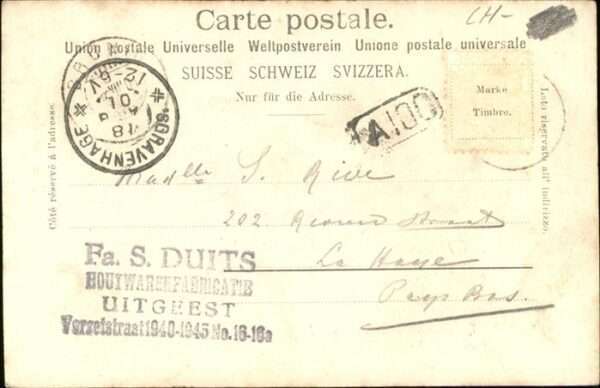 Carte postale.
CH-
Union postale Universelle Weltpostverein Unione postale universale
SUISSE SCHWEIZ SVIZZERA.
Nur für die Adresse.
Marke
Timbre.
Côté réservé à l'adresse.
Lato riservato all' indirizzo.
*'S GRAVENHAGE*
12-6V
18
Madlle S.
202.
La Haye
Pays Bas.
Fa. S. DUITS
HOUTWARENFABRICATIE
UITGEEST
Verzetstraat 1940-1945 No. 16-16a